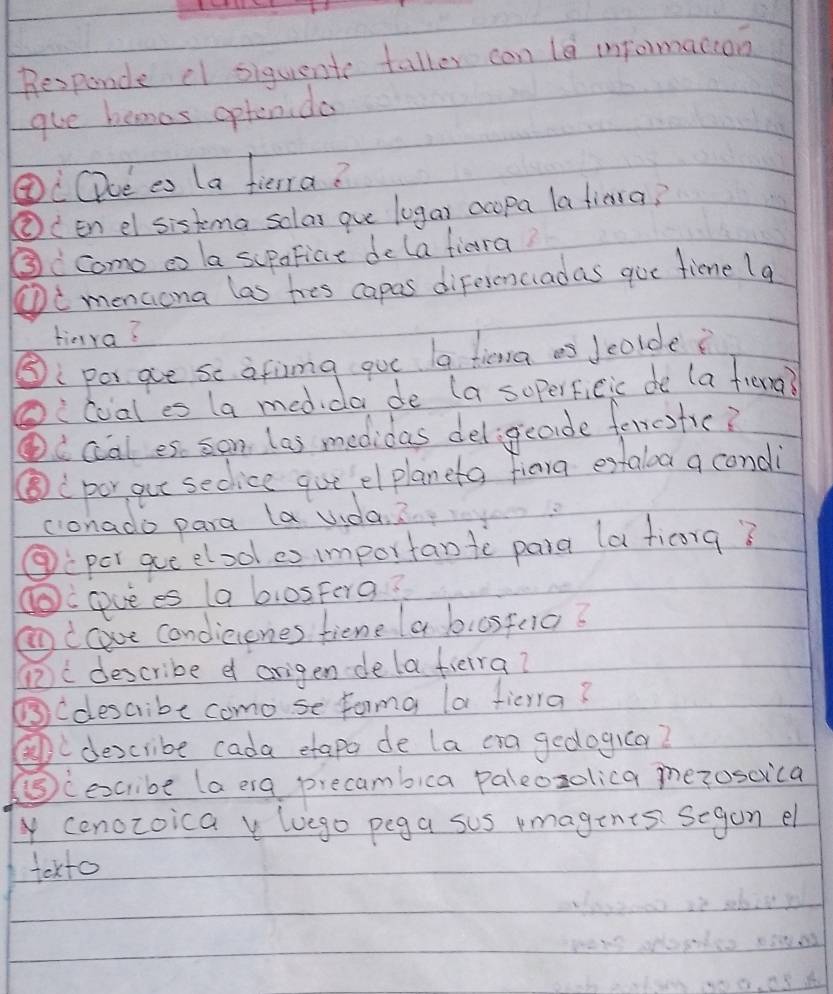 Responde el siguiente taller con la informacion
que hemos optenido
① ¿Que es la tierra?
② ¿En el sistema solar que lugar ocopa la tierra?
③ ¿Como es la supeficie de la tierra?
④ ¿menciona las tres capas diferenciadas que tiene la
tierra?
⑤ ¿por que se afirma que la tierra es Jeoide?
⑥ ¿Cual es la medida de la superficie de la tierra?
⑦ ¿cual es son las medidas del geoide terrestre?
⑧ ¿por que sedice que el planeta tierra estaba a condi
cionado para la vida?
⑨ ¿por que el sol es importante para la tierra?
⑩ ¿que es la biosfera?
⑪ ¿Que condiciones tiene la biosfera?
⑫ ¿describe el origen de la tierra?
⑬ ¿describe como se forma la tierra?
⑭ ¿describe cada etapa de la era geologica?
⑮ ¿escribe la era precambica paleozolica mezosoica
y cenozoica y luego pega sus imagenes segun el
texto